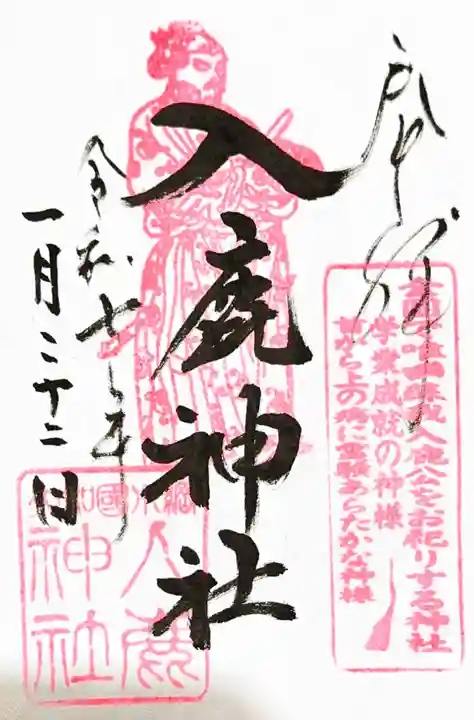 全国で唯一蘇我入鹿公をお祀りする神社
学業成就の神様
首から上の病に霊験あらたかな神様
入鹿神社
令和七年
一月二十二日
入鹿
神社